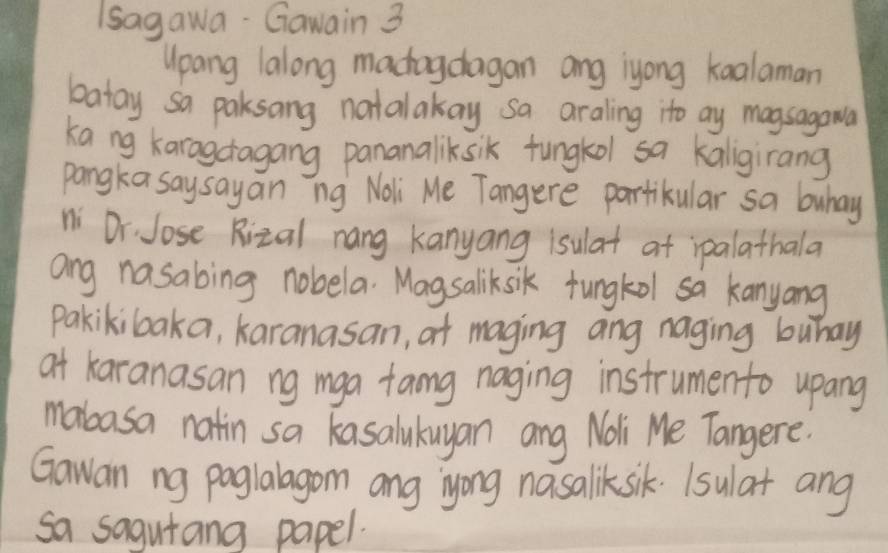 Isagawa - Gawain 3
Upang lalong madagdagan ang iyong kaalaman
batay sa paksang natalakay sa araling ito ay magsagawa
ka ng karagdagang pananaliksik tungkol sa kaligirang
pangkasaysayan ng Noli Me Tangere partikular sa buhay
ni Dr. Jose Rizal nang kanyang isulat at ipalathala
ang nasabing nobela. Magsaliksik tungkol sa kanyang
pakikibaka, karanasan, at maging ang naging buhay
at karanasan ng mga taong naging instrumento upang
mabasa natin sa kasalukuyan ang Noli Me Tangere.
Gawan ng paglalagom ang iyong nasaliksik. Isulat ang
sa sagutang papel.